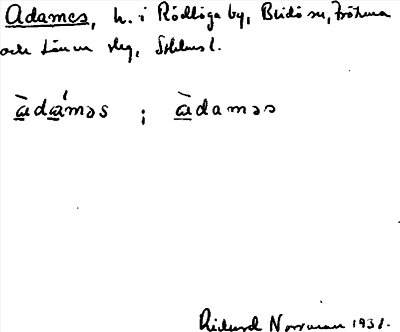 Adames, h. i Rödlöga by, Blidö sn, Frötuna
och Länna slg, Sthlms l.
ա̀dա́məs ; ա̀daməs
Rickard Norrman 1931.